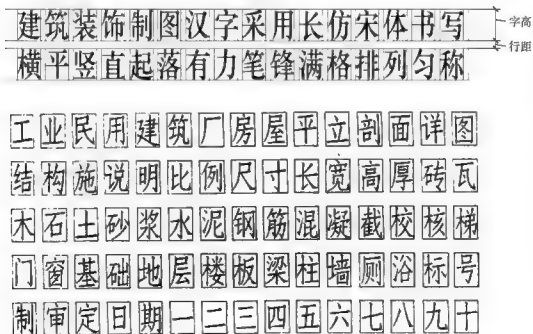 建筑装饰制图汉字采用长仿宋体书写
字高
行距
横平竖直起落有力笔锋满格排列匀称
工业民用建筑厂房屋平立剖面详图
结构施说明比例尺寸长宽高厚砖瓦
木石土砂浆水泥钢筋混凝截校核梯
门窗基础地层楼板梁柱墙厕浴标号
制审定日期一二三四五六七八九十